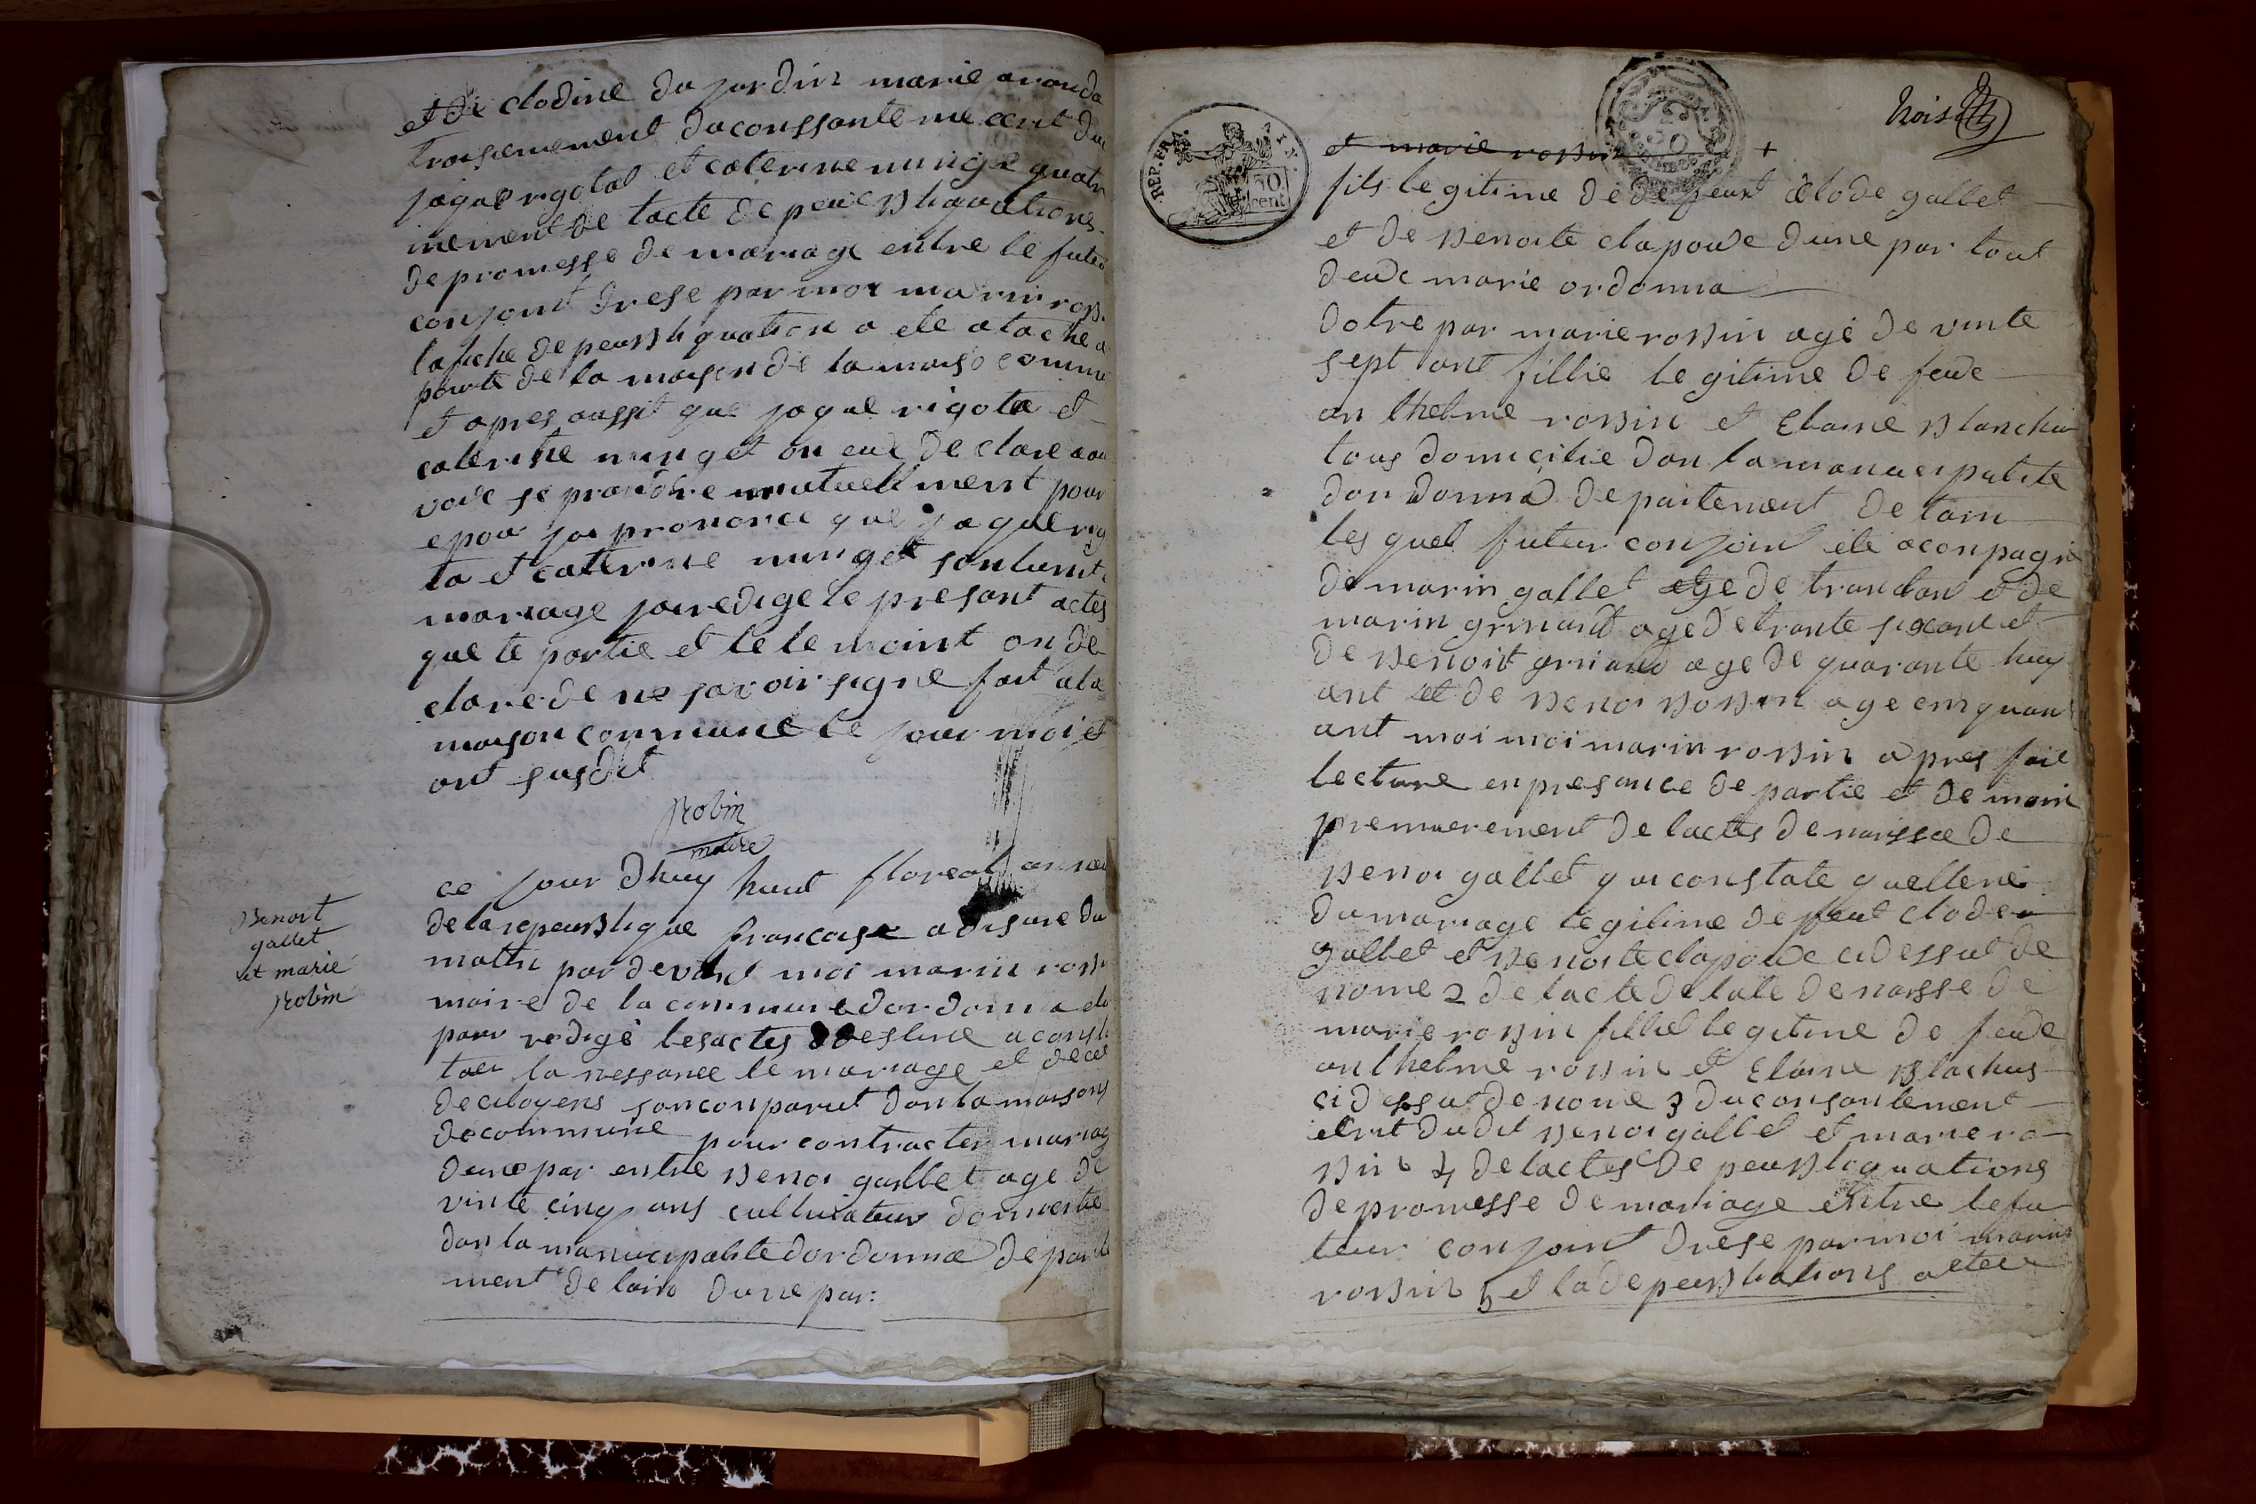 et de clodine du jardin marie a ronda
troisiemement du conssantement du
jaque rigotal et caterine ninge quatr
mement de lacte de peubliquations
de promesse de mariage entre le futeu
conjoint drese par moi marin robi
lafiche de peubliquation a ete atache a
pourte de la maison de la maiso comme
et apres aussit que jaque rigota et
caterine ninget on eut declare a au
voie se prandre mutuellement pour
epou jai prononce que jaque rigo
ta et caterine ninget sont unit
mariage jai redige le presant actes
que le partie et le temoint on de
clare de ne savoir signe fait a la
maison commune le jour moi et
ant susdit
Robin
maire
Benoit
gallet
et marie
Robin
ce jour dhuy huit floreal an neu
de la repeublique francaise a dis ure du
matin par devant moi marin robi
maire de la commune dordonna elu
pour redige les actes destine a consta
tuer la nessance le mariage et deces
de citoyens son conparut dan la maisons
de commune pour contracter mariag
dune par entre benoi gallet age de
vinte cinq ans cultivateur domicilie
dan la manucipalite dordonna departe
ment de lain dune par:
REP. FRA.
50 cent
trois
et marie robin +
fils legitime de defeunt clode gallet
et de benoite clapoude dune par tout
deude marie ordonna
dotre par marie robin age de vinte
sept ant fillie legitime de feude
anthelme robin et Claine blanchar
tous domicilie dan la manucipalite
dordonna departement de lain
lesquel futeur conjoint ete aconpagne
de marin gallet age de trant ant et de
marin grinand age de trante six ant et
de benoit grinand age de quarante huy
ant et de benoi bobin age cinquant
ant moi moi marin robin apres fait
lecture en presance de partie et de moin
premierement de lactes de naissce de
benoi gallet qui constate quelle ne
du mariage legitime de feut clode
gallet et benoite clapoude ci dessut de
nome 2 de lacte de late de naisse de
marie robin fillie legitime de feude
anthelme robin et Claine blachus
ci dessut de nome 3 du consantement
erit dudit benoi gallet et marie ro
bin 4 de lactes de peubliquations
de promesse de mariage entre le fu
teur conjoint drese par moi marin
robin 5 et la de peubliations a etee